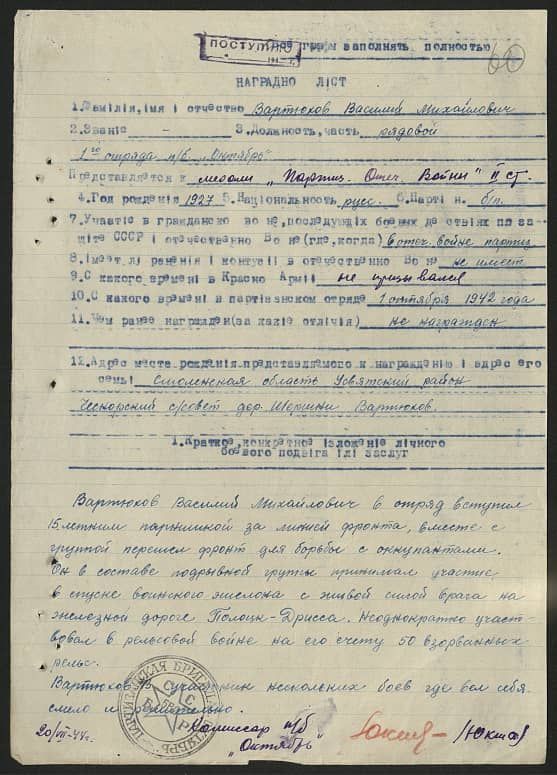 ПОСТУПИЛО
графы заполнять полностью
60
НАГРАДНО ЛIСТ
1. Фамiлiя, iмя i отчество Вартюхов Василий Михайлович
2. Званiе - 3. Должность, часть рядовой
1го отряда п/б "Октябрь"
Представляется к медали "Партиз. Отеч. Войны" II ст.
4. Год рожденiя 1927 5. Нацiональность русс. 6. Партi н. б/п.
7. Участiе в гражданско во не, последующiх боевых де ствiях по за-
щiте СССР i отечественно Во не (где, когда) в отеч. войне партиз
8. Iмеет лi раненiя i контузii в отечественно Во не не имеет
9. С какого временi в Красно Армii не призывался
10. С какого временi в партiзанском отряде 1 октября 1942 года
11. Чем ранее награжден (за какiе отлiчiя) не награжден
12. Адрес места рожденiя представляемого к награжденiю i адрес его
семьi Смоленская область Усвятский район
с/совет дер. Вартюхов.
1. Краткое, конкретное iзложенiе лiчного
боевого подвiга iлi заслуг
Вартюхов Василий Михайлович в отряд вступил
15 летним парнишкой за линией фронта, вместе с
группой перешел фронт для борьбы с оккупантами.
Он в составе подрывной группы принимал участие
в спуске воинского эшелона с живой силой врага на
железной дороге Полоцк-Дрисса. Неоднократно участ-
вовал в рельсовой войне на его счету 50 взорванных
рельс.
Вартюхов В. участник нескольких боев где вел себя
смело и решительно.
ПАРТИЗАНСКАЯ БРИГАДА "ОКТЯБРЬ"
СССР
Комиссар п/б
20/VII-44г. "Октябрь"